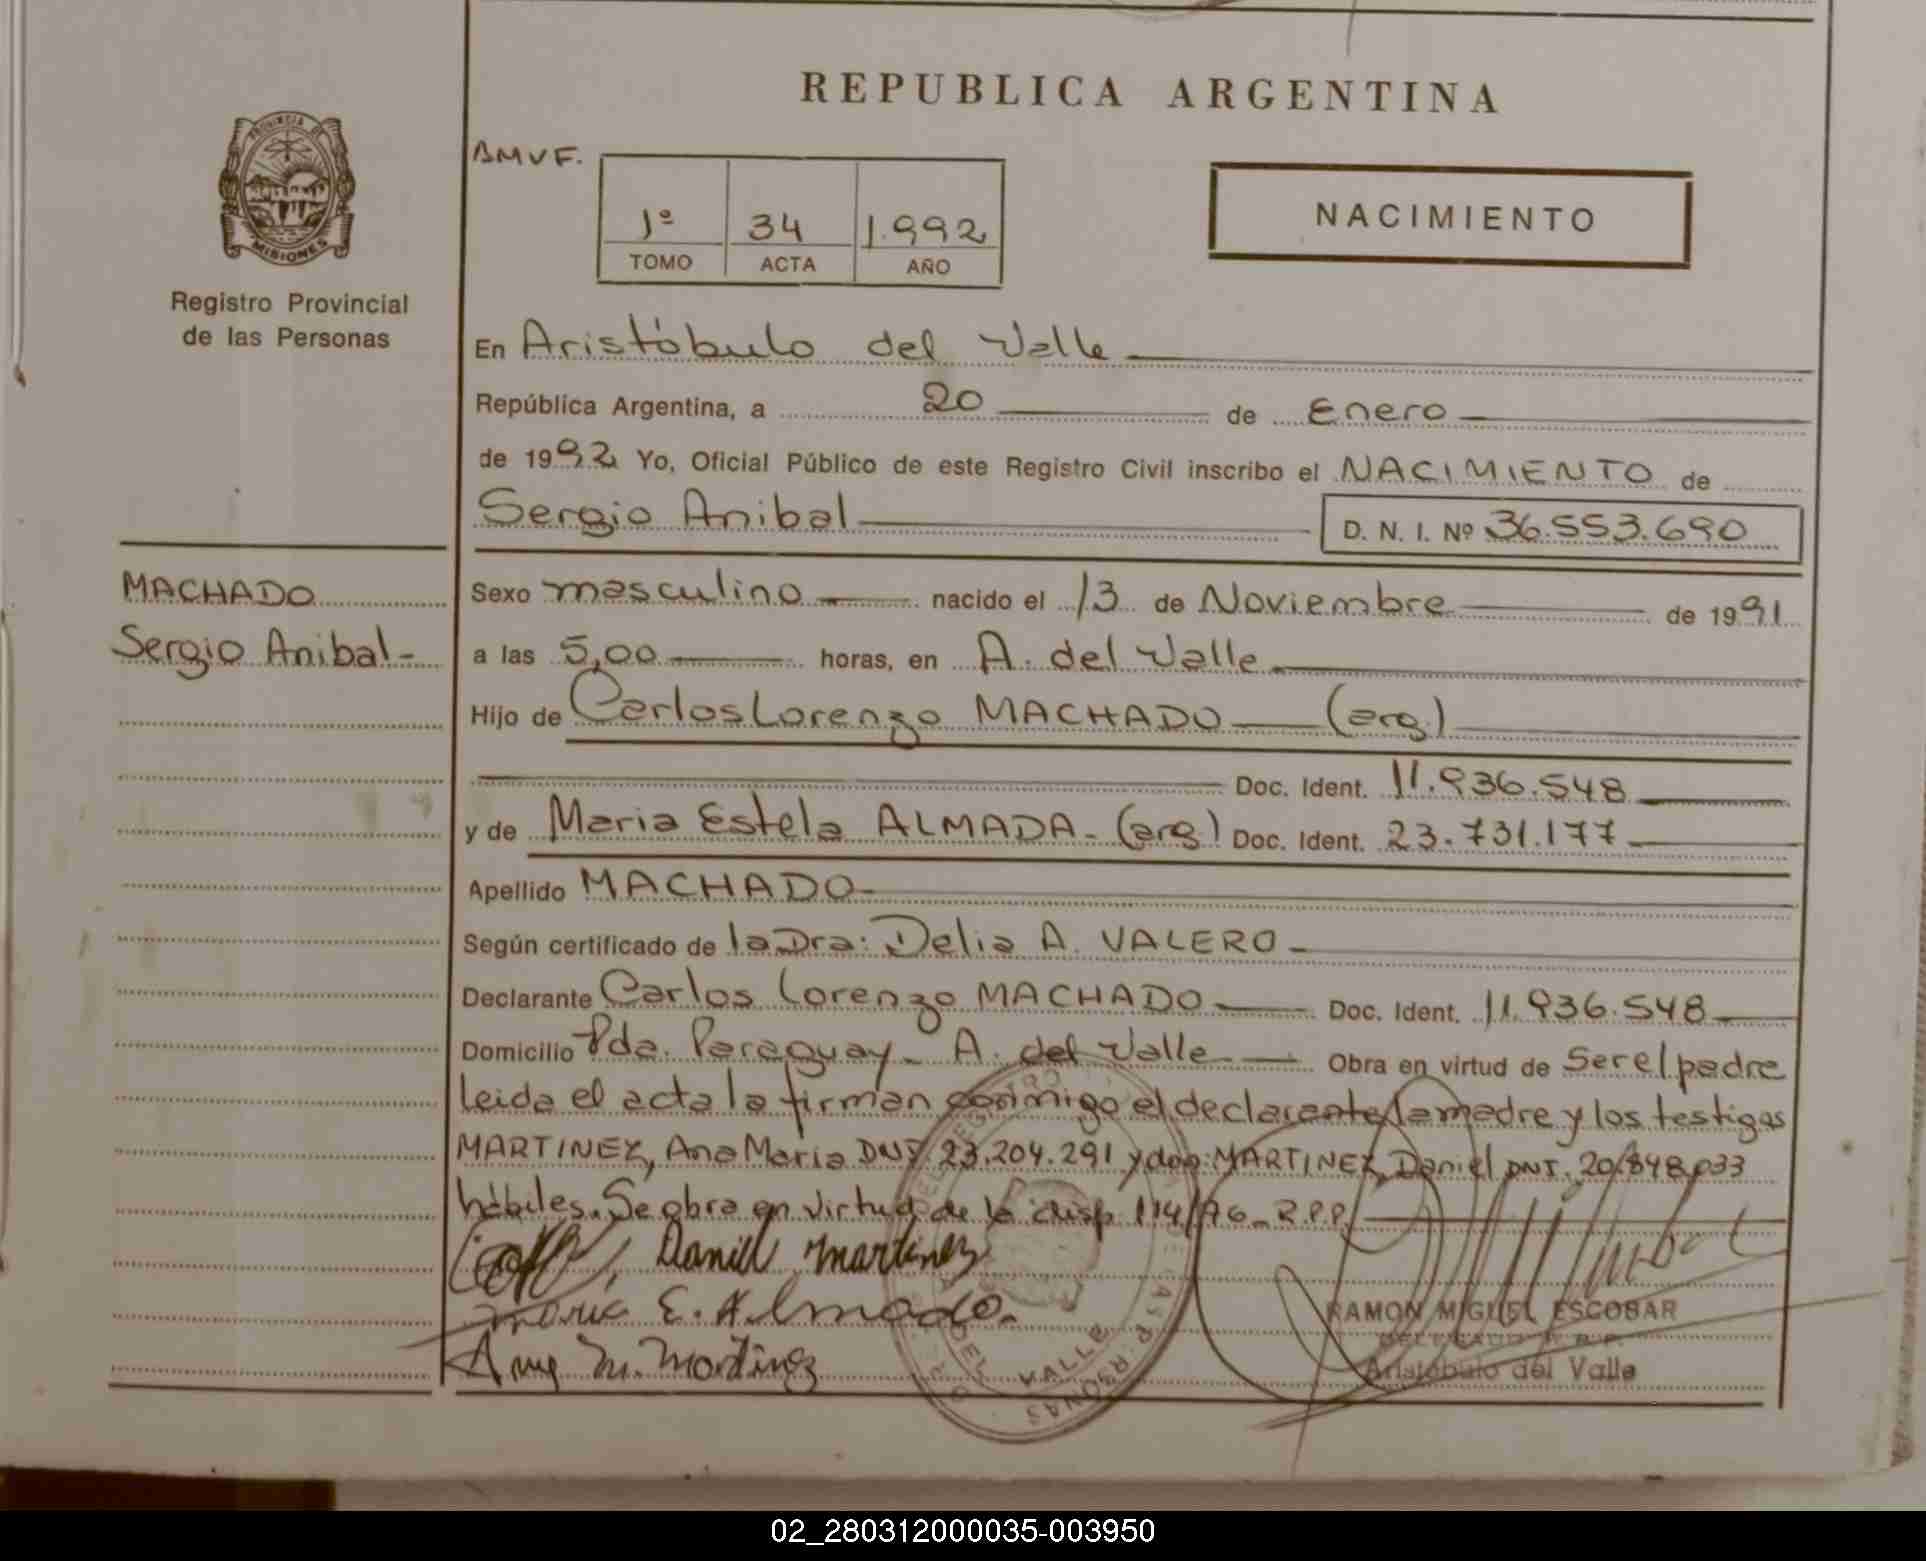 REPUBLICA ARGENTINA
PROVINCIA DE
MISIONES
Registro Provincial
de las Personas
BMVF.
1º 34 1.992
TOMO ACTA AÑO
NACIMIENTO
En Aristóbulo del Valle
República Argentina, a 20 de Enero
de 1992 Yo, Oficial Público de este Registro Civil inscribo el NACIMIENTO de
Sergio Anibal D. N. I. Nº 36.553.690
MACHADO
Sergio Anibal-
Sexo masculino nacido el 13 de Noviembre de 1991
a las 5,00 horas, en A. del Valle
Hijo de Carlos Lorenzo MACHADO (arg.)
Doc. Ident. 11.936.548
y de Maria Estela ALMADA- (arg.) Doc. Ident. 23.731.177
Apellido MACHADO
Según certificado de la Dra: Delia A. VALERO
Declarante Carlos Lorenzo MACHADO Doc. Ident. 11.936.548
Domicilio Pda. Paraguay- A. del Valle Obra en virtud de Ser el padre
leida el acta la firman conmigo el declarante, la madre y los testigos
MARTINEZ, Ana Maria DNI. 23.204.291 y don MARTINEZ, Daniel DNI. 20.848.033
hábiles. Se obra en virtud de la disp. 114/76- R.P.P.
Daniel Martinez
Maria E. Almada.
Ana M. Martinez
RAMON MIGUEL ESCOBAR
DELEGADO R.P.P.
Aristóbulo del Valle
DEL VALLE
02_280312000035-003950